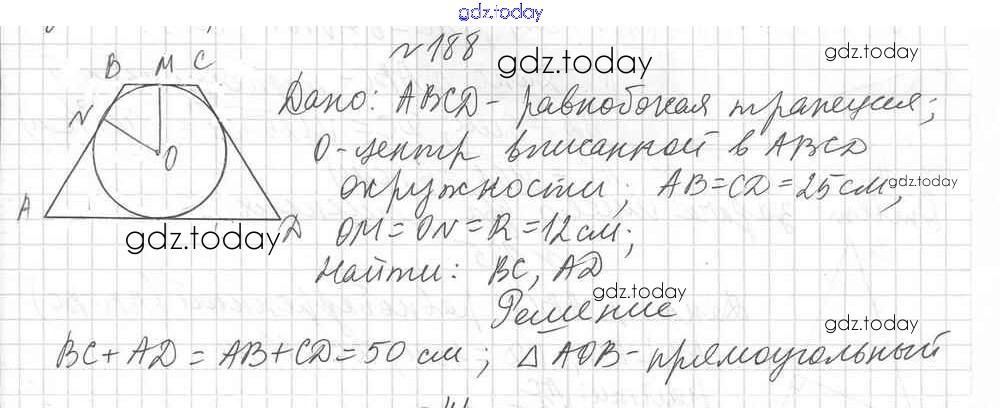 gdz.today
№188
gdz.today
gdz.today
B M C
Дано: ABCD - равнобокая трапеция;
N
O
O - центр вписанной в ABCD
окружности; AB=CD=25см;
gdz.today
A
D
gdz.today
OM=ON=R=12см;
Найти: BC, AD
gdz.today
Решение
gdz.today
BC+AD=AB+CD=50 см; △AOB - прямоугольный